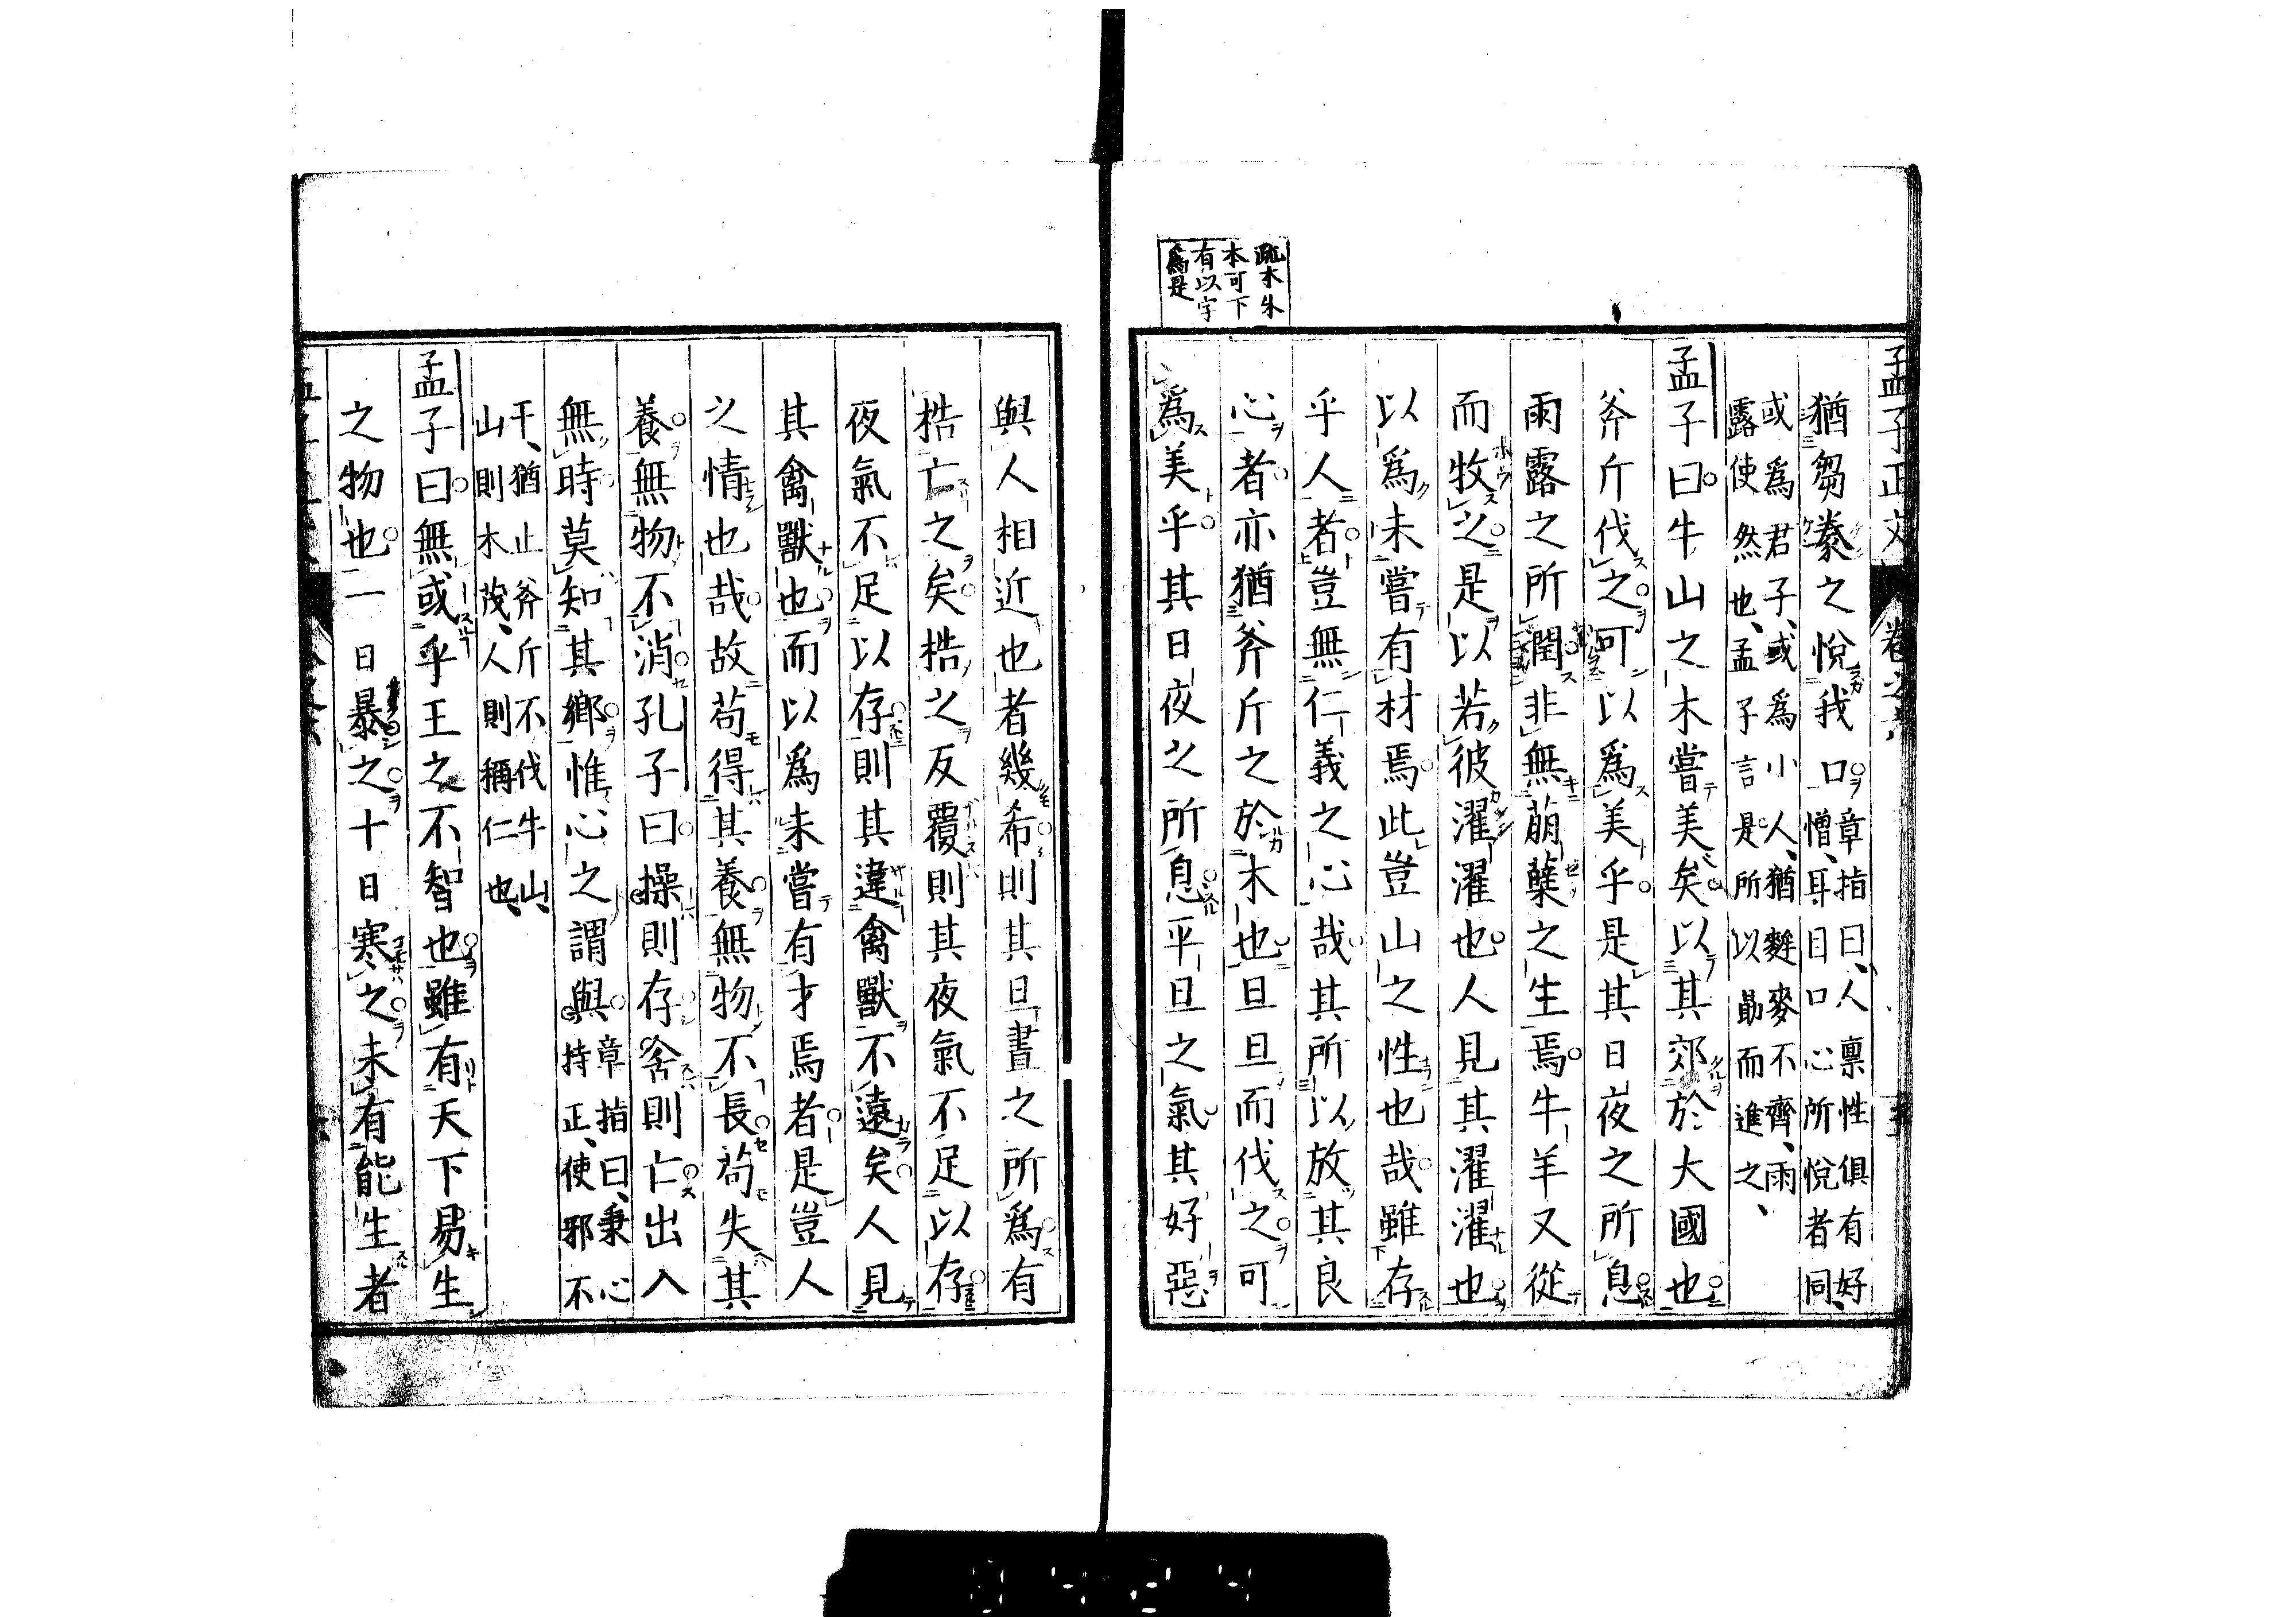 疏本朱
本可下
有以字
爲是
孟子正文 卷之六
猶芻豢之悅我口章指曰、人禀性俱有好
憎、耳目口心所悅者同、
或爲君子、或爲小人、猶麰麥不齊、雨
露使然也、孟子言是所以勗而進之、
孟子曰牛山之木嘗美矣以其郊於大國也
斧斤伐之可以爲美乎是其日夜之所息
雨露之所潤非無萠蘖之生焉牛羊又從
而牧之是以若彼濯濯也人見其濯濯也
以爲未嘗有材焉此豈山之性也哉雖存
乎人者豈無仁義之心哉其所以放其良
心者亦猶斧斤之於木也旦旦而伐之可
爲美乎其日夜之所息平旦之氣其好惡
與人相近也者幾希則其旦晝之所爲有
梏亡之矣梏之反覆則其夜氣不足以存
夜氣不足以存則其違禽獸不遠矣人見
其禽獸也而以爲未嘗有才焉者是豈人
之情也哉故苟得其養無物不長苟失其
養無物不消孔子曰操則存舍則亡出入
無時莫知其鄉惟心之謂與章指曰、秉心
持正、使邪不
干、猶止斧斤不伐牛山、
山則木茂、人則稱仁也、
孟子曰無或乎王之不智也雖有天下易生
之物也一日暴之十日寒之未有能生者